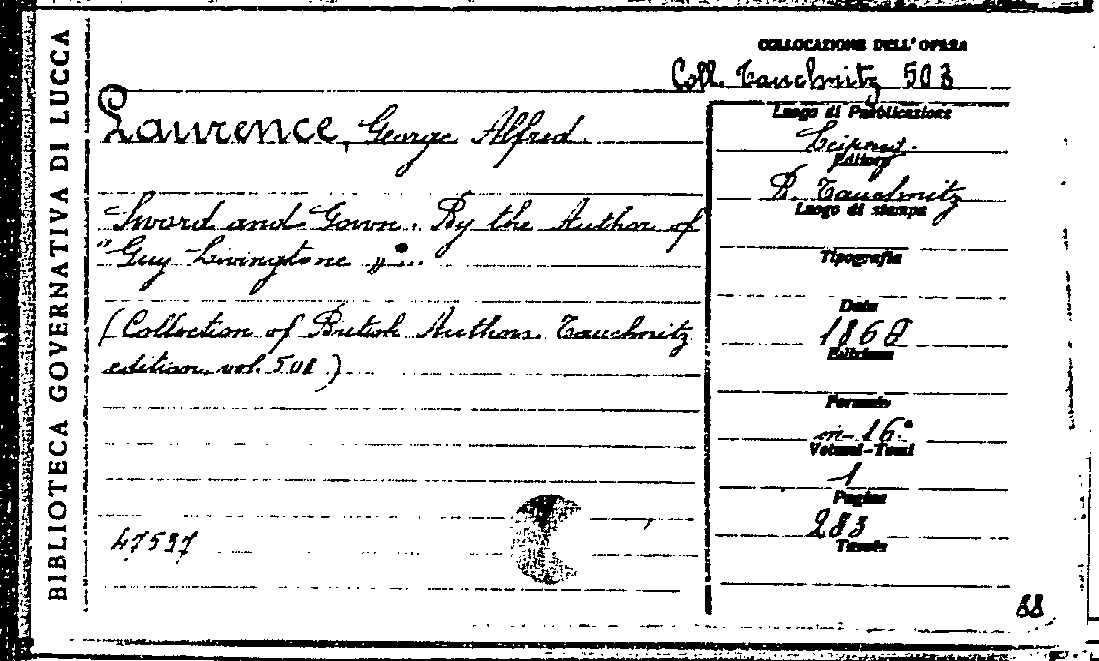 BIBLIOTECA GOVERNATIVA DI LUCCA
COLLOCAZIONE DELL'OPERA
Coll. Tauchnitz 503
Laurence, George Alfred
Sword and Gown. By the Author of
"Guy Livingstone„...
(Collection of British Authors. Tauchnitz
edition. vol. 501)
47537
Luogo di Pubblicazione
Leipzig.
Editore
B. Tauchnitz
Luogo di stampa
Tipografia
Data
Edizione
Formato
in-16.°
Volumi-Tomi
1
Pagine
283
Tavole